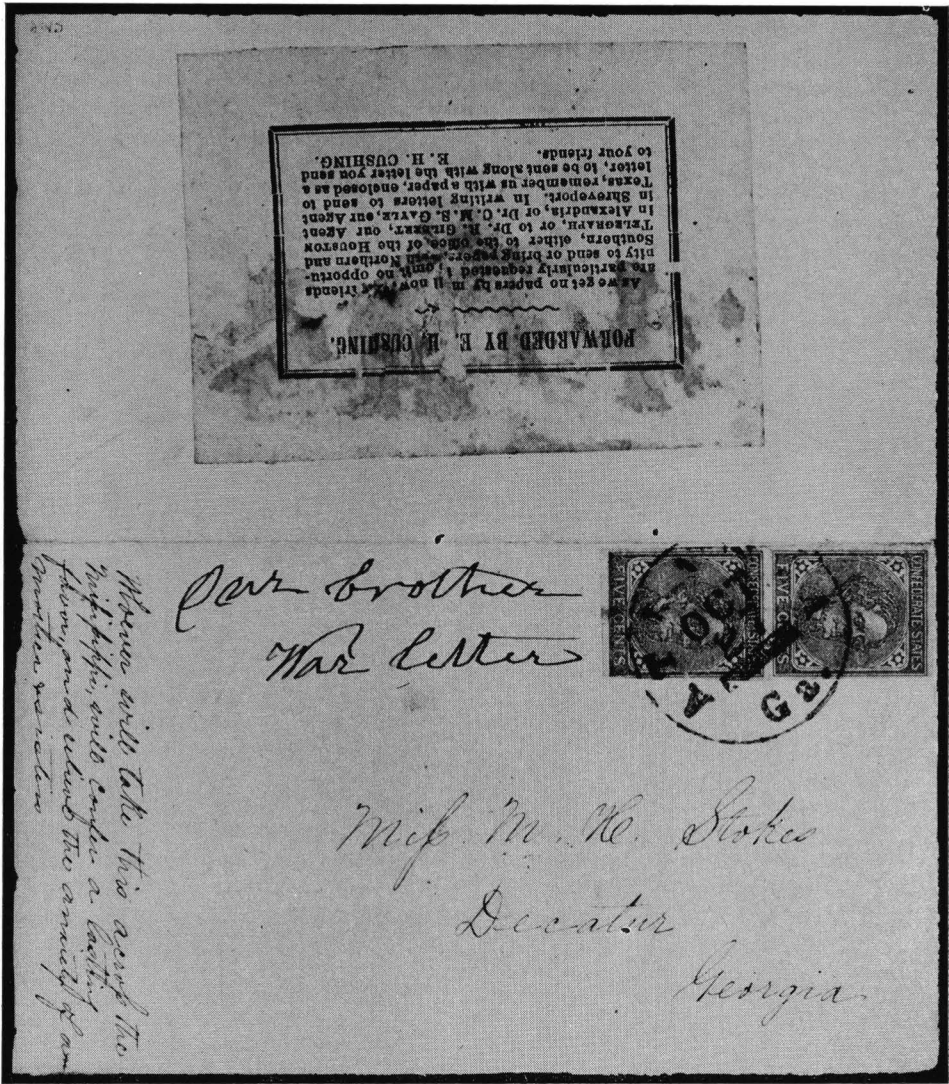 FORWARDED BY E. H. CUSHING.
As we get no papers by mail now, our friends
are particularly requested to omit no opportu-
nity to send or bring papers, both Northern and
Southern, either to the office of the HOUSTON
TELEGRAPH, or to Dr. R. GILBERT, our Agent
in Alexandria, or Dr. C. M. S. GAYLE, our Agent
in Shreveport. In writing letters to send to
Texas, remember us with a paper, enclosed as a
letter, to be sent along with the letter you send
to your friends. E. H. CUSHING.
Our brother
War letter
CONFEDERATE STATES
FIVE CENTS
CONFEDERATE STATES
FIVE CENTS
OCT
Ga.
Miss M. H. Stokes
Decatur
Georgia
Whoever will take this across the
Mississippi, will confer a lasting
favor, and relieve the anxiety of a
mother &